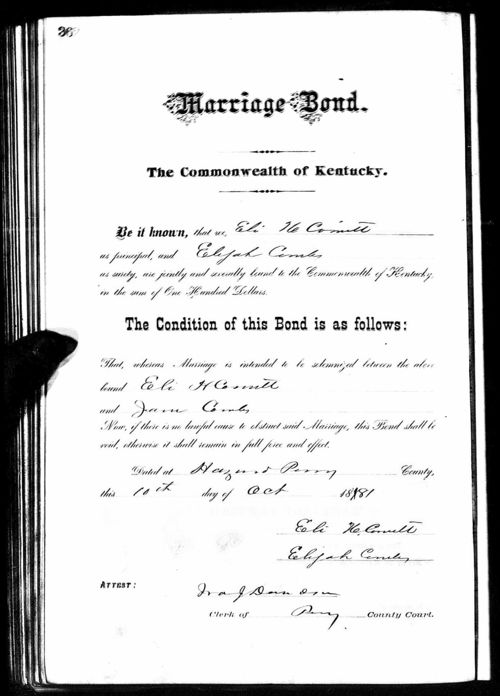 36
Marriage Bond.
The Commonwealth of Kentucky.
Be it known, that we, Eli H Cornett
as principal, and Elijah Combs
as surety, are jointly and severally bound to the Commonwealth of Kentucky,
in the sum of One Hundred Dollars.
The Condition of this Bond is as follows:
That, whereas Marriage is intended to be solemnized between the above
bound Eli H Cornett
and Jane Combs
Now, if there is no lawful cause to obstruct said Marriage, this Bond shall be
void, otherwise it shall remain in full force and effect.
Dated at Hazard Perry County,
this 10th day of Oct 1881
Eli H Cornett
Elijah Combs
ATTEST: Ira J Davidson
Clerk of Perry County Court.